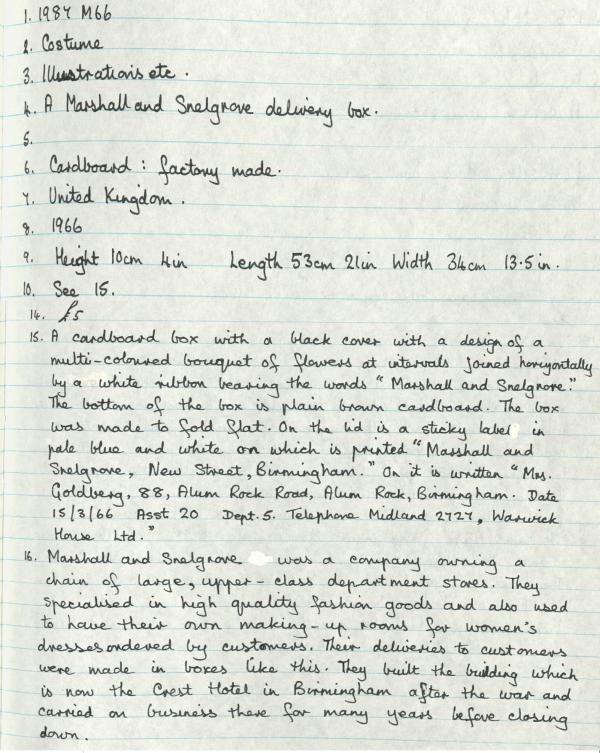 1. 1987 M66
2. Costume
3. Illustrations etc.
4. A Marshall and Snelgrove delivery box.
5.
6. Cardboard : factory made.
7. United Kingdom.
8. 1966
9. Height 10cm 4in Length 53cm 21in Width 34cm 13.5in.
10. See 15.
14. £5
15. A cardboard box with a black cover with a design of a
multi-coloured bouquet of flowers at intervals joined horizontally
by a white ribbon bearing the words "Marshall and Snelgrove."
The bottom of the box is plain brown cardboard. The box
was made to fold flat. On the lid is a sticky label in
pale blue and white on which is printed "Marshall and
Snelgrove, New Street, Birmingham." On it is written "Mrs.
Goldberg, 88, Alum Rock Road, Alum Rock, Birmingham. Date
15/3/66 Asst 20 Dept. 5. Telephone Midland 2727, Warwick
House Ltd."
16. Marshall and Snelgrove was a company owning a
chain of large, upper-class department stores. They
specialised in high quality fashion goods and also used
to have their own making-up rooms for women's
dresses ordered by customers. Their deliveries to customers
were made in boxes like this. They built the building which
is now the Crest Hotel in Birmingham after the war and
carried on business there for many years before closing
down.